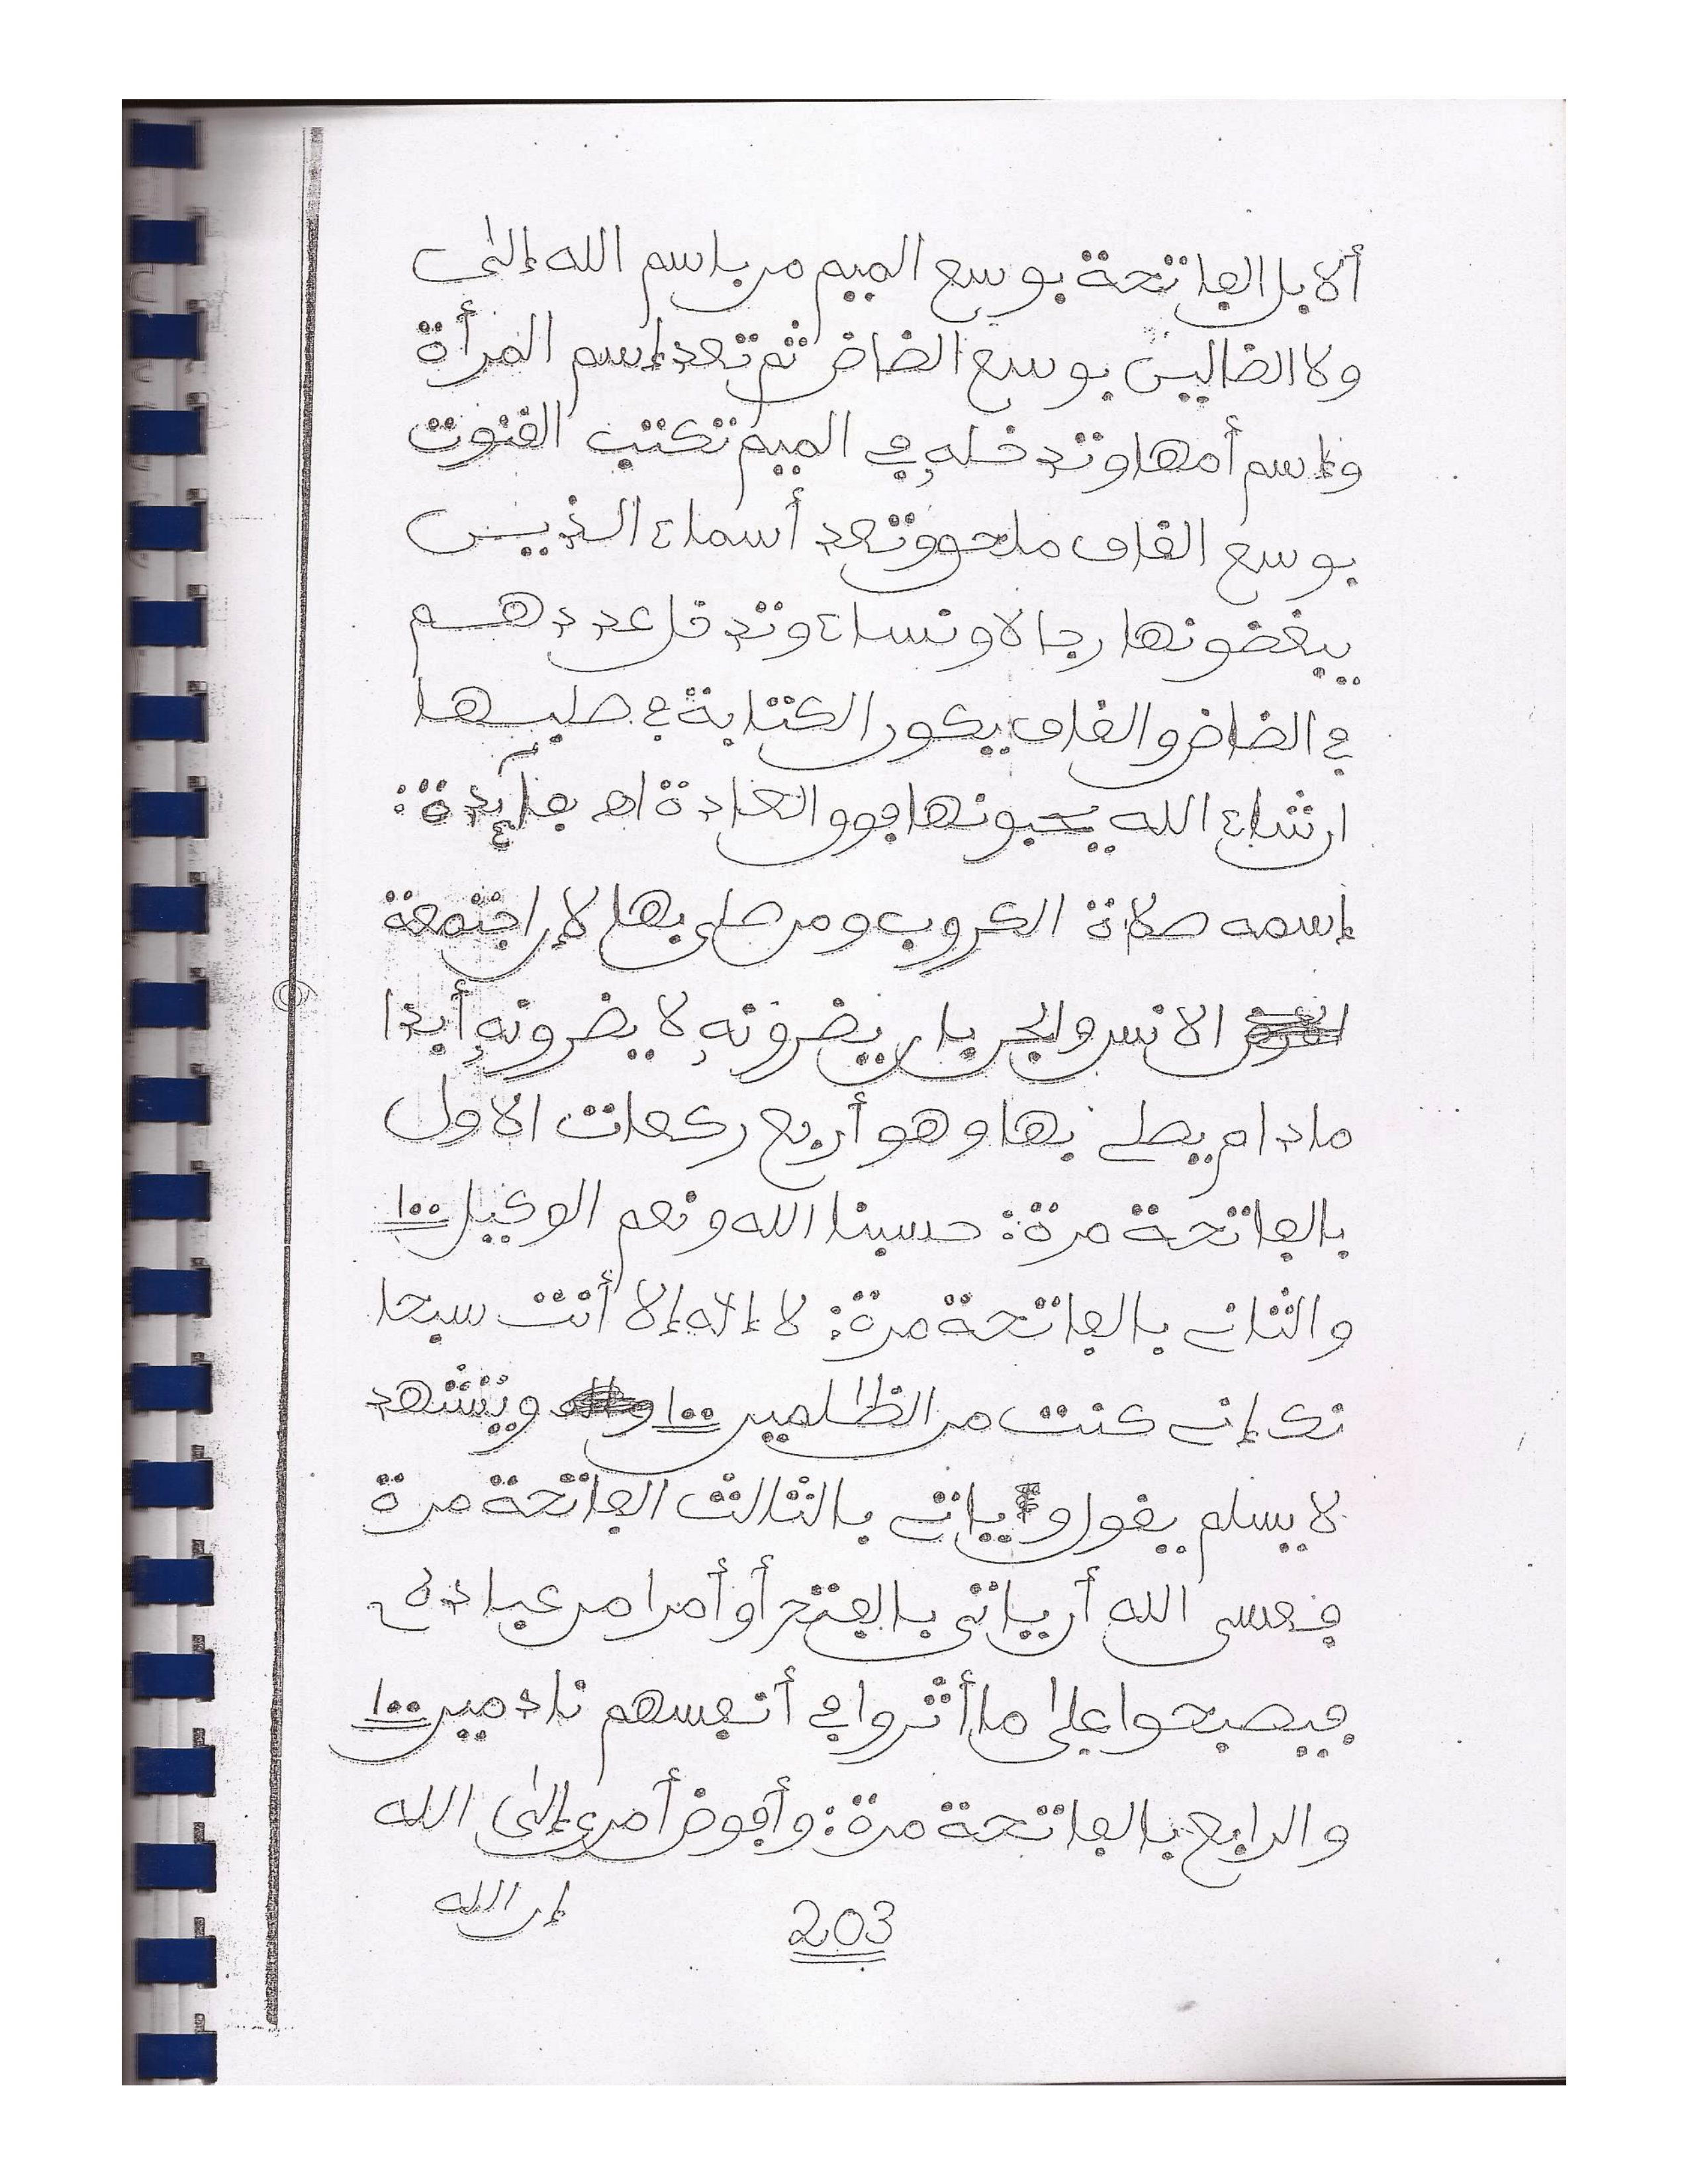 ألا بل الفاتحة بوسع الميم من باسم الله إلى
ولا الضالين بوسع الضاض ثم تعد إسم المرأة
وإسم أمها وتدخله في الميم تكتب القنوت
بوسع القاف ملحق وتعد أسماء الذين
يبغضونها رجالا ونساء وتدخل عددهم
في الضاض والقاف يكون الكتابة في صلبها
ان شاء الله يحبونها فوق العادة اهـ فآئدة:
إسمه صلاة الكروب ومن صلى بها لإن اجتمعة
الانس والجن بان يضرونه لا يضرونه أبدا
مادام يصلي بها وهو أربع ركعات الاول
بالفاتحة مرة: حسبنا الله ونعم الوكيل ١٠٠
والثاني بالفاتحة مرة: لا إله إلا أنت سبحا
نك إني كنت من الظلمين ١٠٠ ويتشهد
لا يسلم يقول و ياتي بالثالث الفاتحة مرة
فعسى الله أن ياتي بالفتح أو أمرا من عباده
فيصبحوا على ما أثروا في أنفسهم نادمين ١٠٠
والرابع بالفاتحة مرة: وأفوض أمري إلى الله
إن الله
203